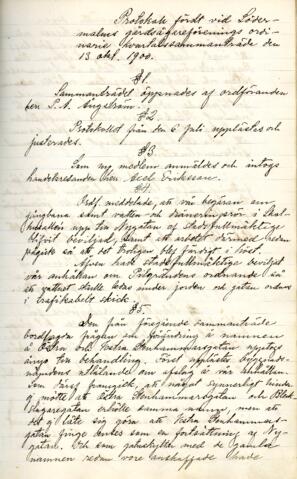 Protokoll fördt vid Söder-
malms gårdsägareförenings ordi-
narie kvartalssammanträde den
13 okt. 1900.
§1.
Sammanträdet öppnades af ordföranden
herr S. A. Ångström.
§2
Protokollet från den 6 juli upplästes och
justerades.
§3
Som ny medlem anmäldes och intogs
handelsresanden herr Axel Eriksson.
§4.
Ordf. meddelade, att vår begäran om
gångbana samt vatten- och dräneringsrör i
upp till Nygatan af stadsfullmäktige
blifvit beviljad, samt att arbetet dermed redan
pågick så att det troligen blir färdigt i höst.
Äfven hade stadsfullmäktige beviljat
vår anhållan om ordnande så
att vattnet skulle ledas under jorden och gatan ordnas
i trafikabelt skick.
§5.
Den från föregående sammanträde
bordlagda frågan om förändring af namnen
å Östra och Vestra Stenhammarsgatan upptogs
ånyo till behandling. Först upplästes byggnads-
nämndens utlåtande om afslag å vår anhållan.
Som deraf framgick, att något synnerligt hinder
ej mötte att Östra Stenhammarsgatan och
erhölle samma namn, men att
det ej läte sig göra att Vestra Stenhammars-
gatan finge anses som en fortsättning af Ny-
gatan. Och som gatuskyltar med de gamla
namnen redan vore anskaffade hade